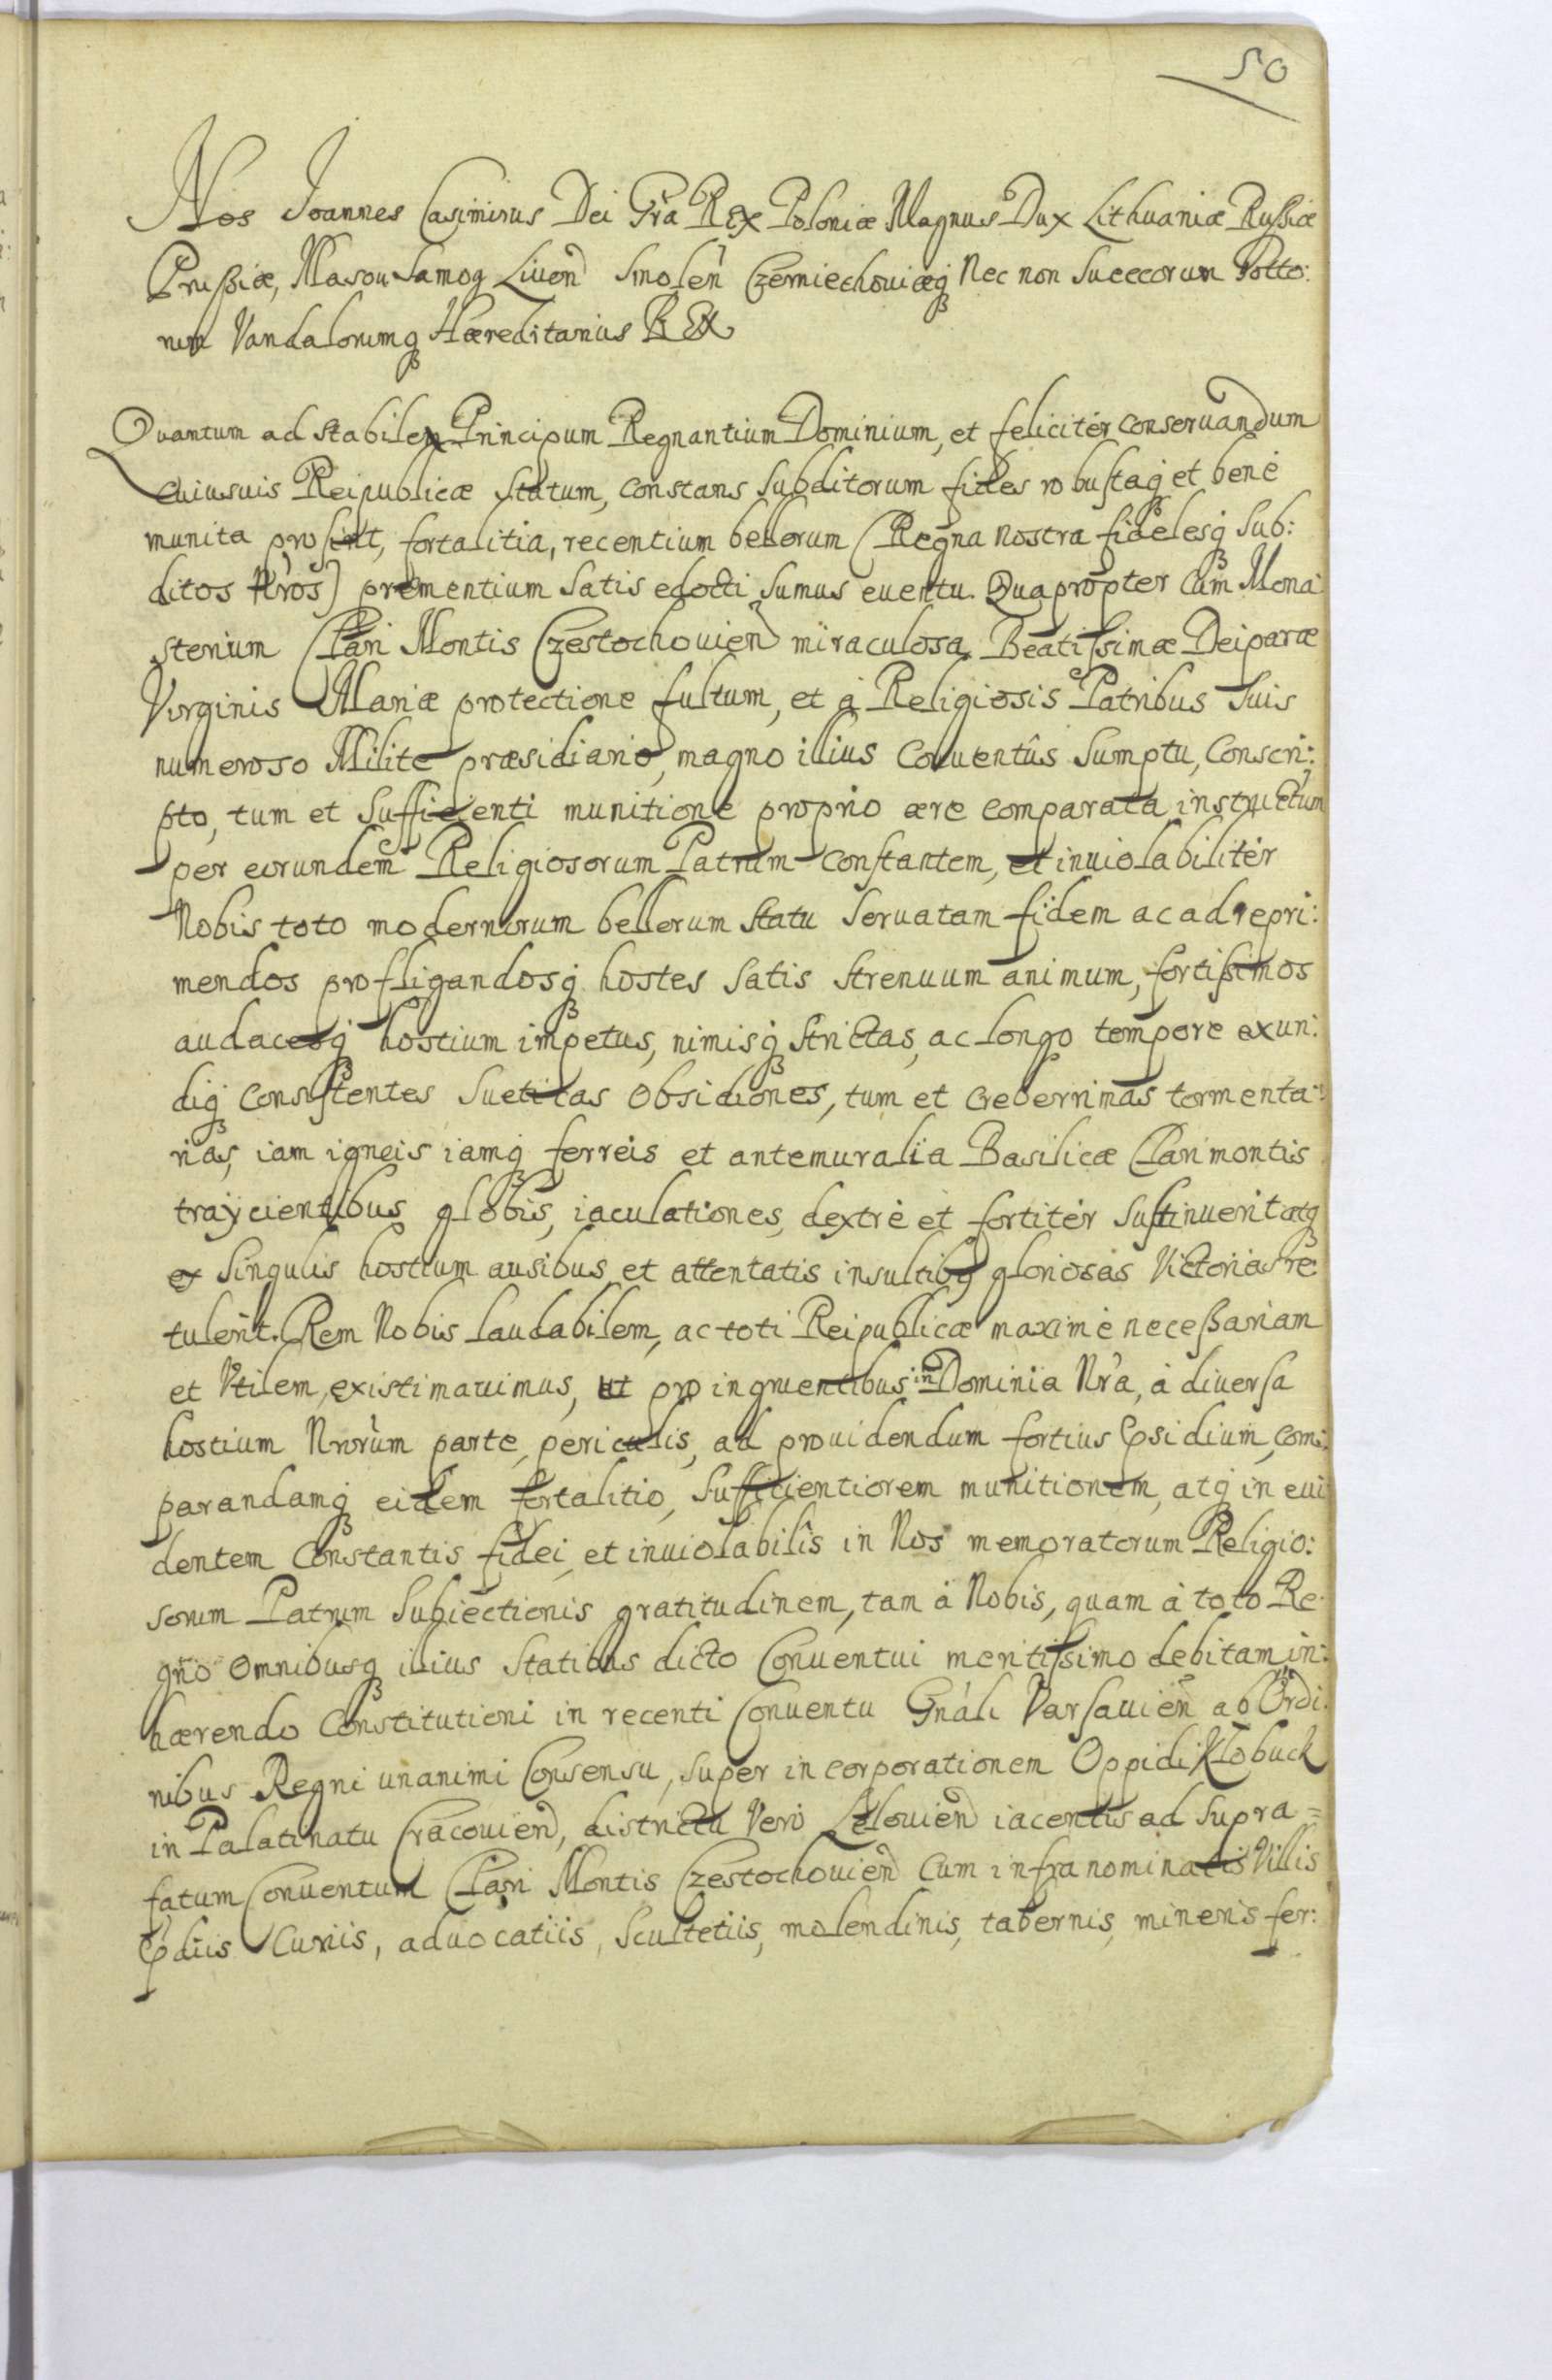 50
Nos Joannes Casimirus Dei Gra REX Poloniæ Magnus Dux Lithuaniæ Rußiæ
Prußiæ, Masou Samog Liuon Smolen Czerniechouiæq Nec non Sueccorum Gotto:
rum Vandalorumq Hæreditarius REX
Quantum ad stabilem Principum Regnantium Dominium, et felicitér conseruandum
cuiusuis Reipublicæ Statum, constans Subditorum fides robustaq et benè
munita prosint, fortalitia, recentium bellorum (Regna nostra fidelesq Sub:
ditos Nros) prementium satis edocti sumus euentu. Quapropter Cum Mona
sterium Clari Montis Czestochouien miraculosa Beatissimæ Deiparæ
Virginis Mariæ protectione fultum, et à Religiosis Patribus suis
numeroso Milite præsidiario, magno illius Conuentûs Sumptu, Conscri:
pto, tum et Sufficienti munitione proprio ære comparata instructum
per eorundem Religiosorum Patrum Constantem, et inuiolabilitèr
Nobis toto modernorum bellorum statu Seruatam fidem ac ad repri:
mendos profligandosq hostes Satis strenuum animum, fortißimos
audacesq hostium impetus, nimisq strictas, ac longo tempore ex un:
diq consistentes Suetitas Obsidiones, tum et creberrimas tormenta:
rias, iam igneis iamq ferreis et antemuralia Basilicæ Clarimontis
traÿcientibus globis, iaculationes, dextrè et fortitèr Sustinuerit atq
ex Singulis hostium ausibus et attentatis insultibq gloriosas Victorias re
tulerit. Rem Nobis laudabilem, ac toti Reipublicæ maximè neceßariam
et Vtilem, existimauimus, ut pro ingruentibus in Dominia Nra, à diuersa
hostium Nrorum parte, periculis, ad prouidendum fortius psidium, com:
parandamq eidem fortalitio, Sufficientiorem munitionem, atq in eui
dentem Constantis fidei, et inuiolabilis in Nos memoratorum Religio:
sorum Patrum Subiectionis gratitudinem, tam à Nobis, quam à toto Re
gno Omnibusq illius Statibus dicto Conuentui meritissimo debitam in:
hærendo Constitutioni in recenti Conuentu Gnali Varsauien ab Ordi:
nibus Regni unanimi Consensu, super incorporationem Oppidi Klobuck
in Palatinatu Cracouien, districtu Vero Lelouien iacentis ad Supra=
fatum Conuentum Clari Montis Czestochouien Cum infra nominatis Villis
pdiis Curiis, aduocatiis, Scultetiis, molendinis, tabernis, mineris fer: